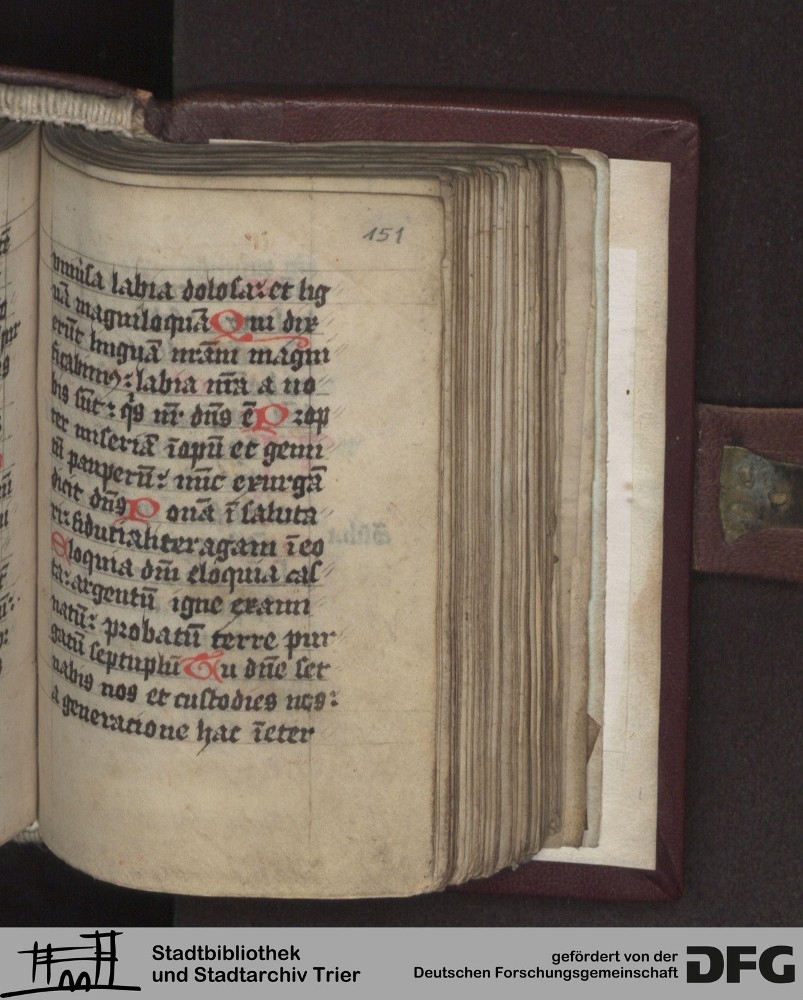 151
vniu̇sa labia dolosa: et lig
uā magniloquā Qui dix
erūt linguā nr̄am magni
ficabimꝰ: labia nr̄a a no
bis sūt: q̇s nr̄ dn̄s ē Prop
ter miseriā īopū et gemi
tū pauperū: nūc exurgā
dicit dn̄s Ponā ī saluta
ri: fiducialiter agam ī eo
Eloquia dn̄i eloquia cas
ta: argentū igne exami
natū: probatū terre pur
gatū septuplū Tu dn̄e ser
uabis nos et custodies nos:
a generacione hac ī eter
Stadtbibliothek
und Stadtarchiv Trier
gefördert von der
Deutschen Forschungsgemeinschaft
DFG